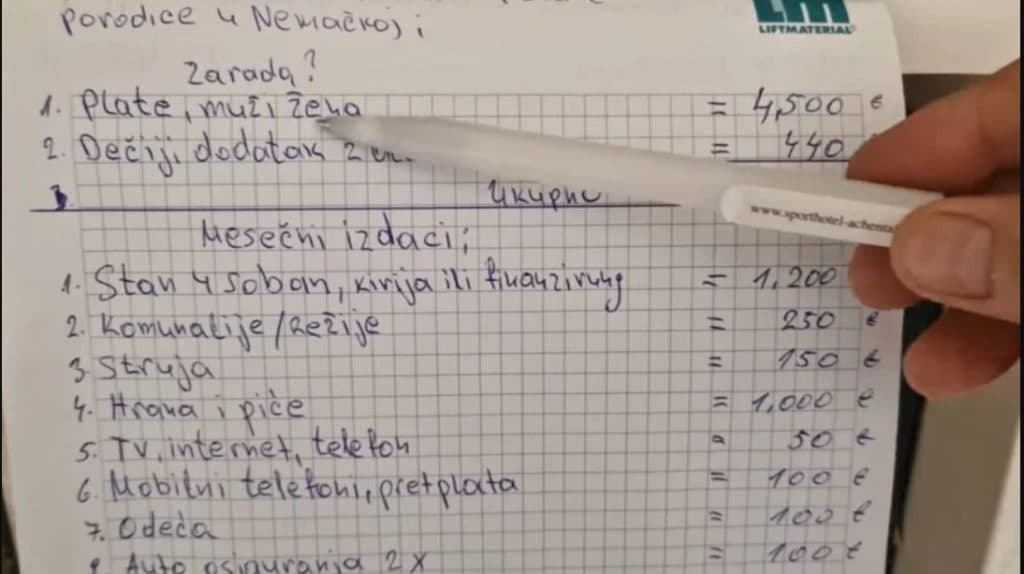 LM
LIFTMATERIAL
porodice u Nemačkoj;
Zarada?
1. Plate, muž i žena = 4,500 €
2. Dečiji dodatak 2 = 440
3. Ukupno
www.sporthotel-achenta
Mesečni izdaci;
1. Stan 4 soban, kirija ili finanzirung = 1,200
2. Komunalije/Režije = 250 €
3. Struja = 150 €
4. Hrana i piće = 1,000 €
5. TV, internet, telefon = 50 €
6. Mobilni telefoni, pretplata = 100 €
7. Odeća = 100 €
8. Auto osiguranja 2x = 100 €